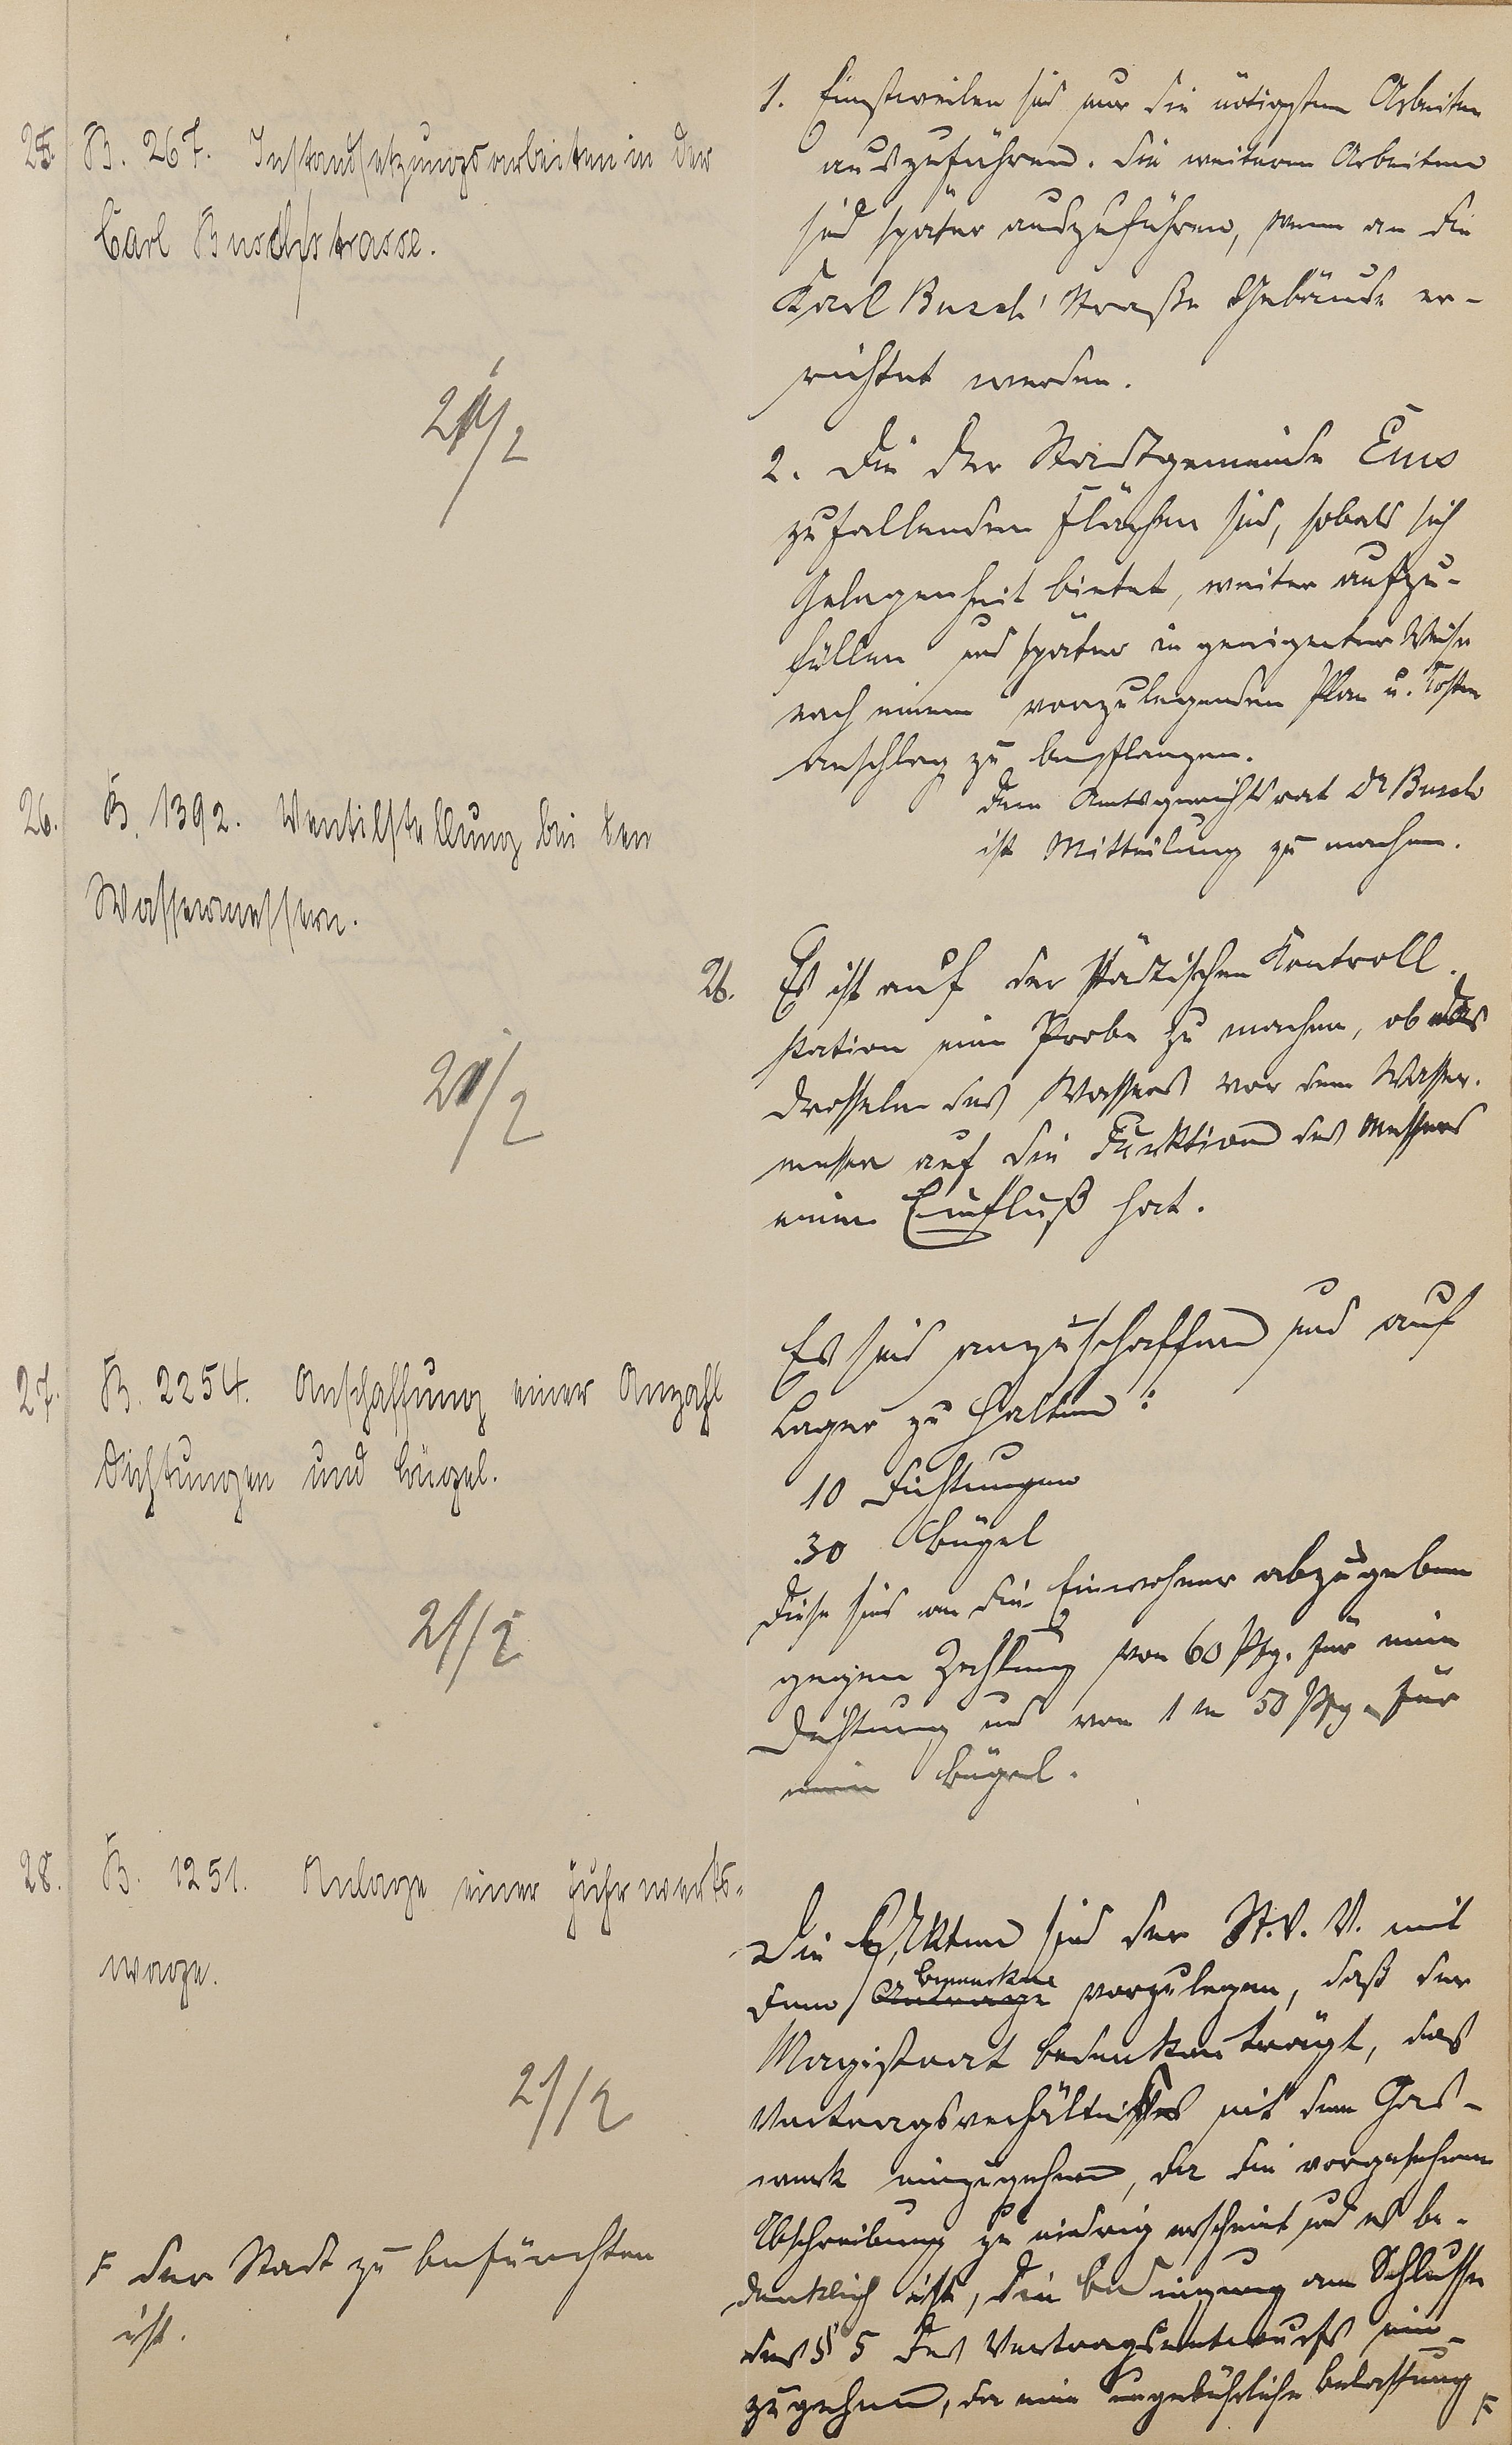 25. B. 267. Instandsetzungsarbeiten in der
Carl Buschstrasse.
21/2
1. Einstweilen sind nur die nötigsten Arbeiten
auszuführen. Die weiteren Arbeiten
sind später auszuführen, wenn an die
Karl Busch Straße Gebäude er-
richtet werden.
2. Die der Stadtgemeinde Ems
zufallenden Flächen sind, sobald sich
Gelegenheit bietet, weiter aufzu-
füllen und später in geeigneter Weise
nach einem vorzulegenden Plan u. Kosten
anschlag zu bepflanzen.
Dem Amtsgerichtsrat Dr Busch
ist Mitteilung zu machen.
26. B. 1392. Ventilstellung bei den
Wassermessern.
21/2
26. Es ist auf der städtischen Kontroll-
station eine Probe zu machen, ob das
Drosseln des Wassers vor dem Wasser-
messer auf die Funktion des Messers
einen Einfluß hat.
27. B. 2254. Anschaffung einer Anzahl
Dichtungen und Bügel.
21/2
Es sind anzuschaffen und auf
Lager zu halten:
10 Dichtungen
30 Bügel
Diese sind an die Einwohner abzugeben
gegen Zahlung von 60 Pfg. für eine
Dichtung und von 1 M 50 Pfg. für
einen Bügel.
28. B. 1251. Anlage einer Fuhrwerks-
wage.
21/2
Die Akten sind der St. V. V. mit
dem Antrage Bemerken vorzulegen, daß der
Magistrat Bedenken trägt, das
Vertragsverhältnis mit dem Gas-
werk einzugehen, da die vorgesehene
Abschreibung zu niedrig erscheint und es be-
denklich ist, die Bedingung am Schlusse
des § 5 des Vertragsentwurfs ein-
zugehen, da eine ungebührliche Belastung F
F der Stadt zu befürchten
ist.